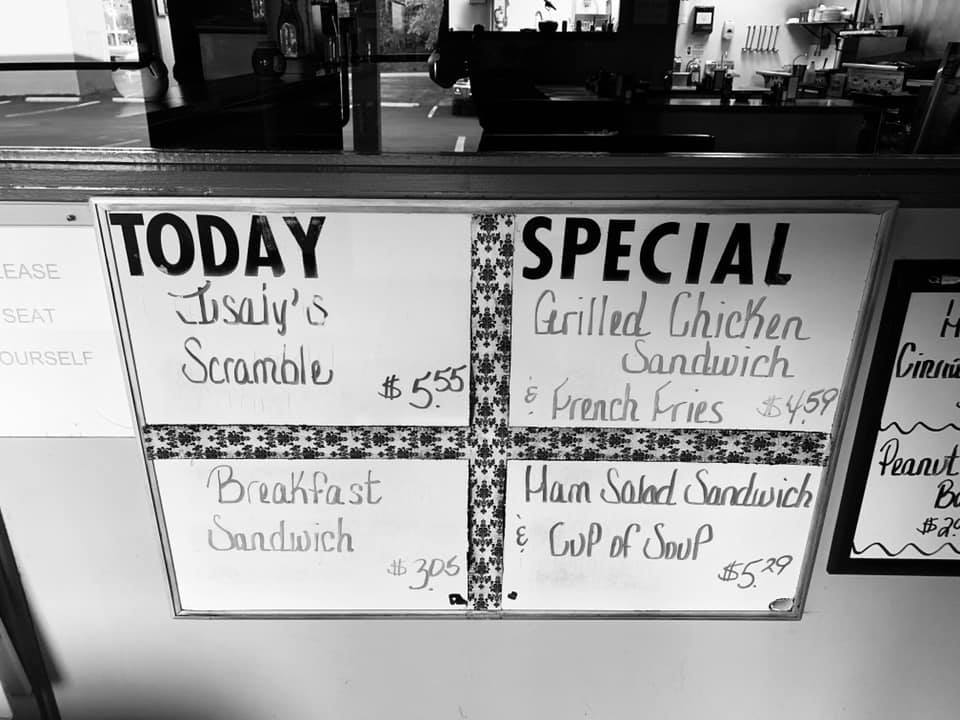 TODAY
SPECIAL
Isaly's
Scramble
$5.55
Grilled Chicken
Sandwich
& French Fries $4.59
Breakfast
Sandwich
$3.05
Ham Salad Sandwich
& Cup of Soup
$5.29
EASE
SEAT
OURSELF
Peanut